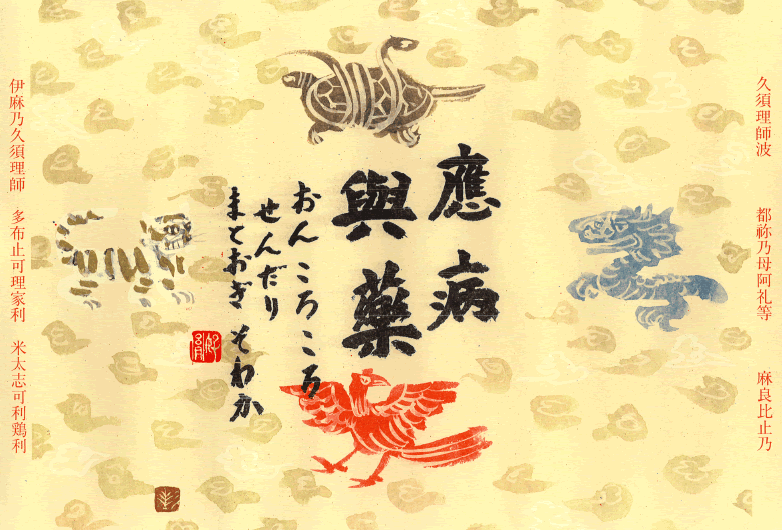 久須理師波 都祢乃母阿礼等 麻良比止乃
應病
與藥
おん ころころ
せんだり
まとおぎ そわか
伊麻乃久須理師 多布止可理家利 米太志可利鶏利